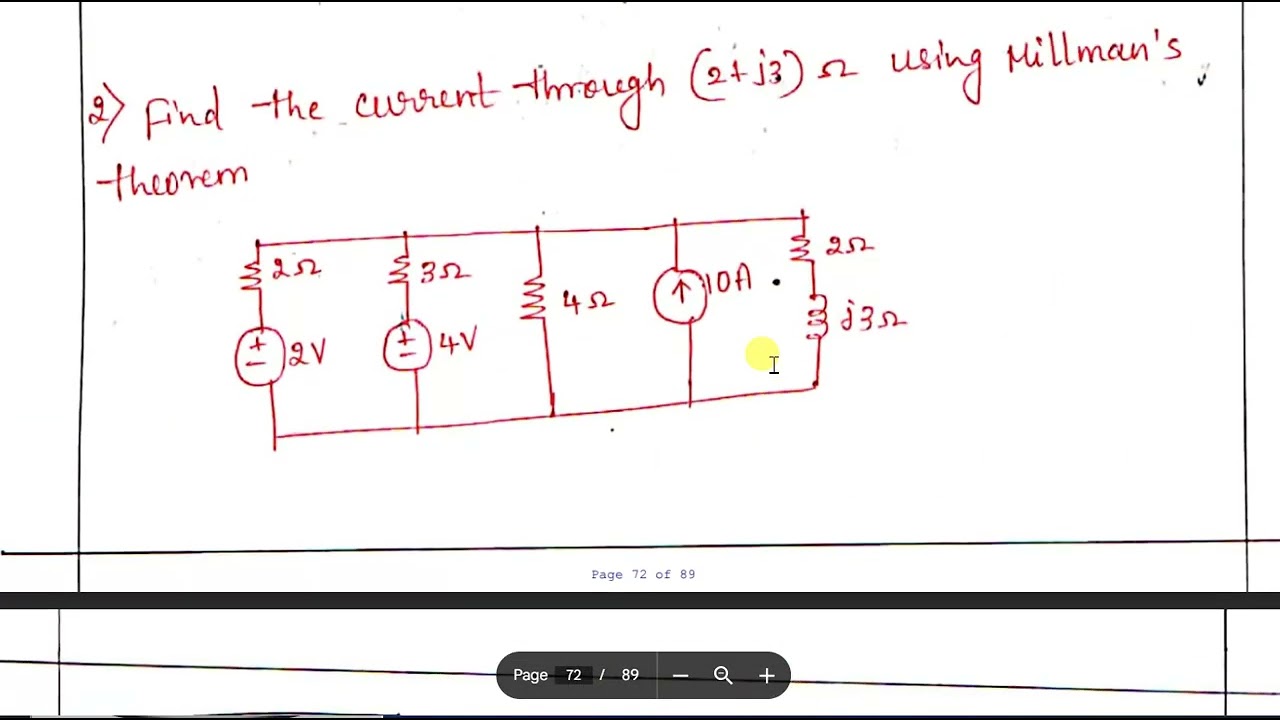 2) Find the current through (2+j3) Ω using Millman's
theorem
2Ω
3Ω
4Ω
10A
2Ω
j3Ω
+
-
2V
+
-
4V
Page 72 of 89
Page 72 / 89